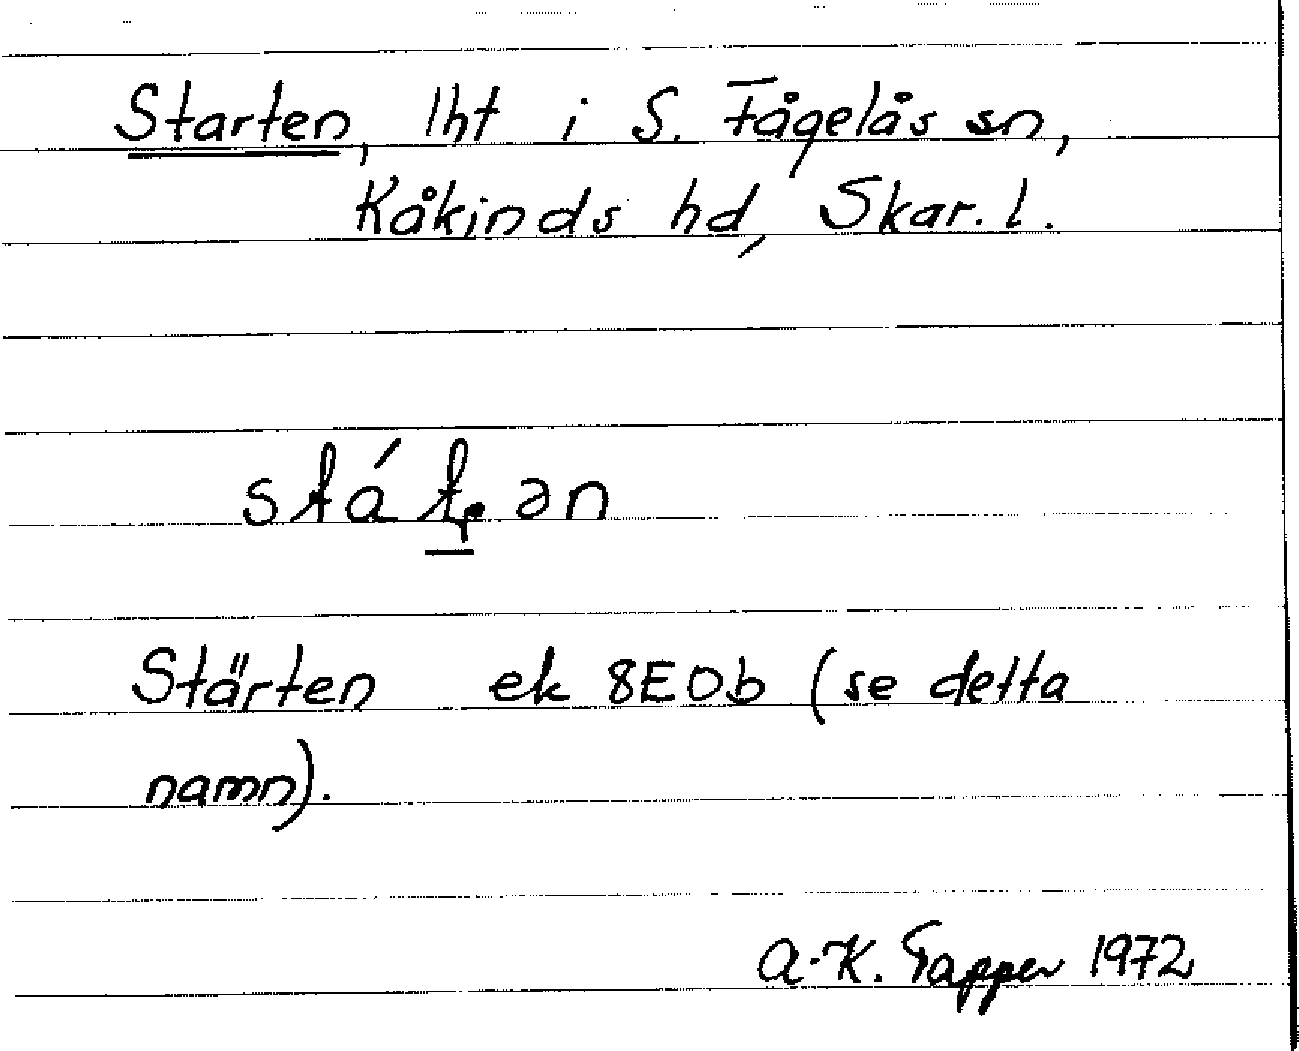 Starten, lht i S. Fågelås sn,
Kåkinds hd, Skar. l.
stá ʈ ən
Stärten ek 8E0b (se detta
namn).
A-K. Tapper 1972